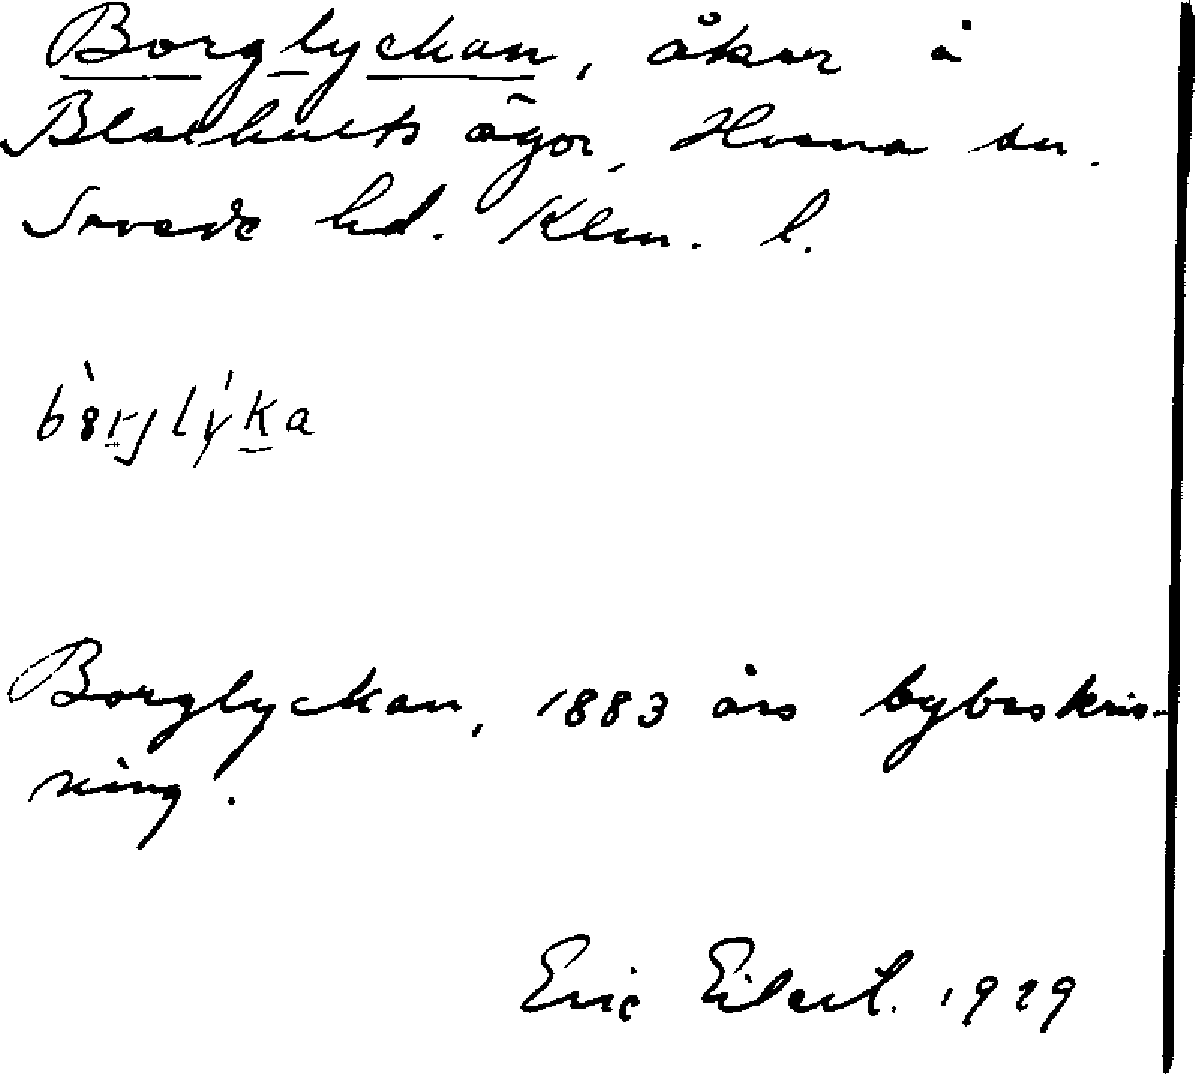 Borglyckan, åker å
Blackhults ägor, Hvena sn.
Sevede hd. Klm. l.
bòrjlýka
Borglyckan, 1883 års bybeskriv-
ning.
Eric Eilert. 1929